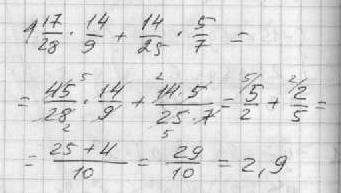 1 17/28 · 14/9 + 14/25 · 5/7 =
= 45⁵/28₂ · 14/9 + ²14·5/25·7₅ = ⁵/5/2 + ²/2/5 =
= 25+4/10 = 29/10 = 2,9